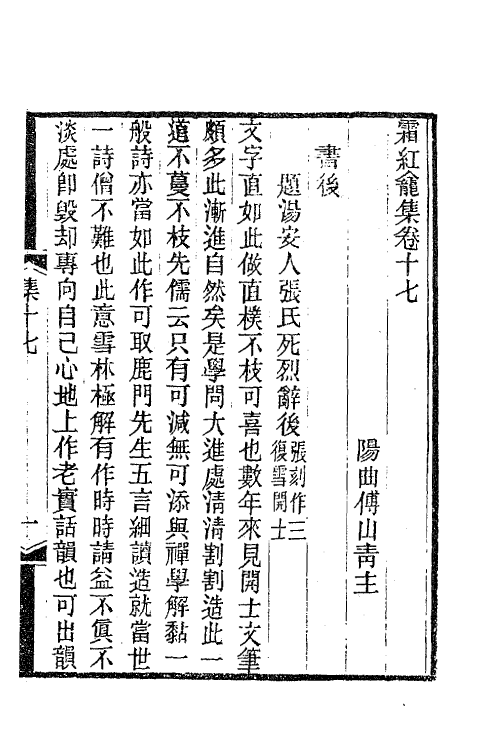 霜紅龕集卷十七
陽曲傅山靑主
書後
題湯安人張氏死烈辭後張刻作三復雪開士
文字直如此做直樸不枝可喜也數年來見開士文筆
頗多此漸進自然矣是學問大進處淸淸割割造此一
道不蔓不枝先儒云只有可減無可添與禪學解黏一
般詩亦當如此作可取鹿門先生五言細讀造就當世
一詩僧不難也此意雪林極解有作時時請益不眞不
淡處卽毀却專向自己心地上作老實話韻也可出韻
集十七
一